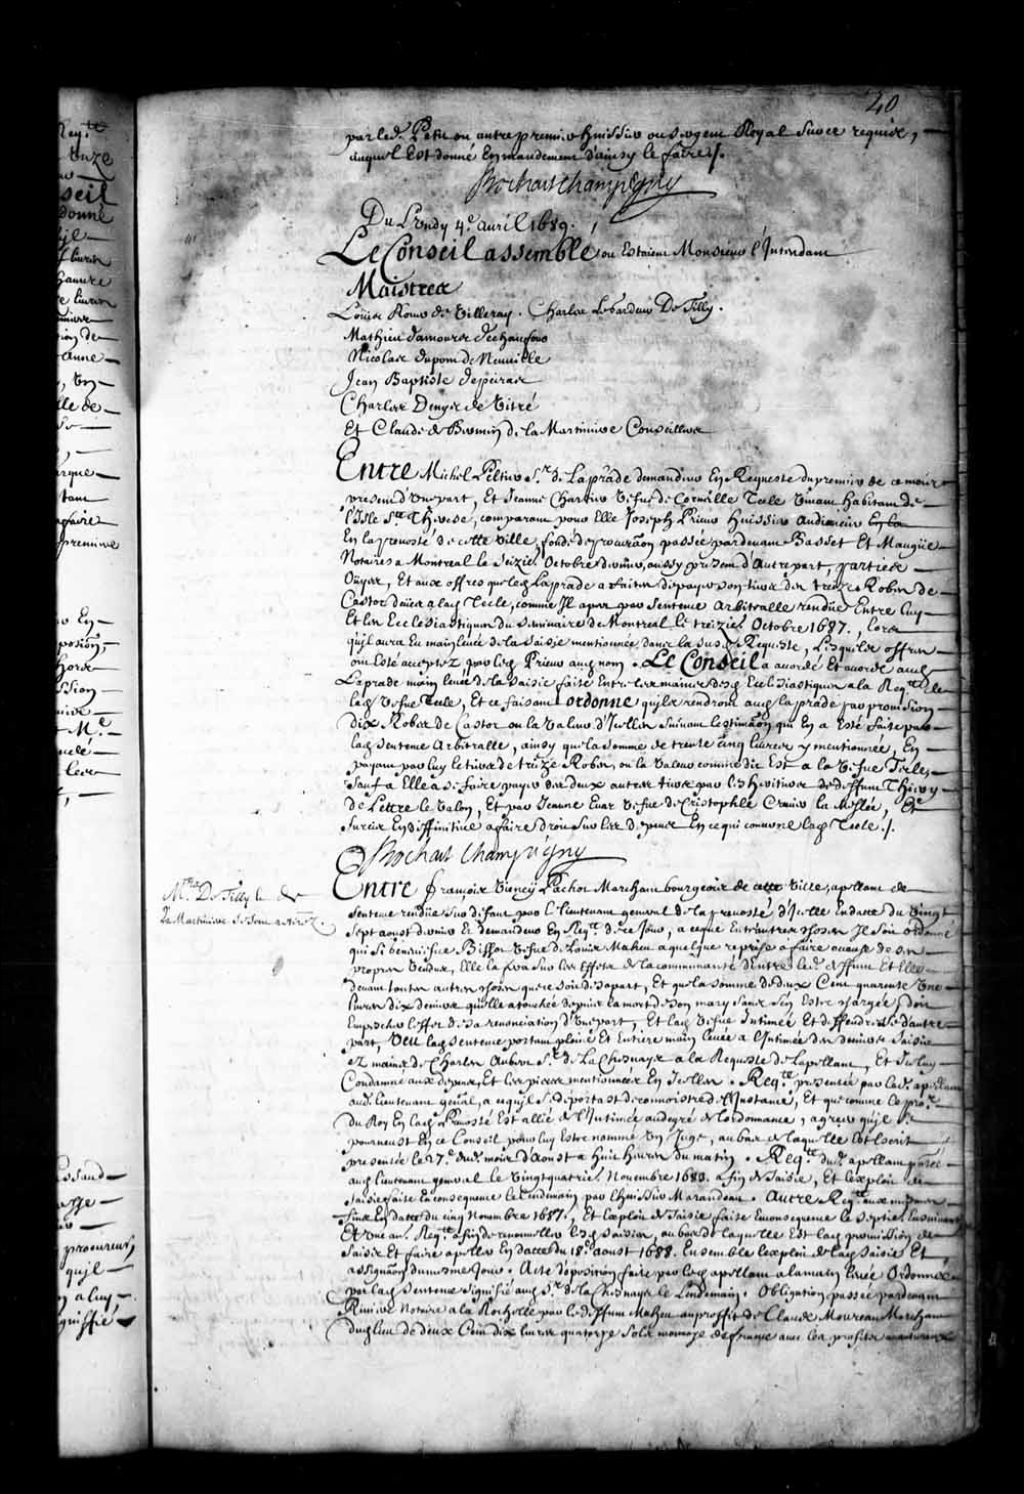 40
par led. Petit ou autre premier huissier ou sergent Royal sur ce requis,
auquel Est donné En mandement d'ainsy le faire /.
Bochart Champigny
Du Lundy 4e. avril 1689.
Le Conseil assemblé, ou Estoient Monsieur l'Intendant
Maistres
Louis Rouer de Villeray. Charles Legardeur De Tilly.
Mathieu damours deschaufour
Nicolas dupont de Neuville
Jean Baptiste depeiras
Charles Denys de Vitré
Et Claude de Bermen de la Martiniere Conseillers
Entre Michel Peltier Sr. de Laprade demandeur En Requeste du premier de ce mois
present d'Unepart, Et Jeanne Chartier Vefue de Tecle Vivant habitant de
l'Isle Ste. Therese, comparant pour Elle Joseph Prieur huissier audiancier
En la prevosté de cette Ville, fondé de procuraõn passée pardevant Basset Et Maugüe
Notaires a Montreal le Seizie. Octobre dernier, aussy present d'Autre part, parties
Ouyes, Et aux offres que led. Laprade a faites de payer son tiers des treize Robes de
Castor deües a lad. Tecle, comme Il apert par Sentence Arbitralle rendüe Entre luy
Et les Ecclesiastiques du Seminaire de Montreal le treizie. Octobre 1687., lors
qu'il aura Eu mainlevée de la saisie mentionnée dans la susd. Requeste, Lesquelles offres
ont Esté acceptez par led. Prieur aud. nom. Le Conseil a accordé Et accorde aud.
Laprade main levée de la saisie faite Entre les mains desd. Ecclesiastiques a la Reqte. de
lad. Vefue Tecle, Et ce faisant ordonne qu'ils rendront aud. la prade par provision
Dix Robes de Castor ou la valeur d'Icelles suivant lestimaõn qui En a Esté faite par
lad. Sentence Arbitralle, ainsy que la somme de trente cinq livres y mentionnée, En
payant par luy le tiers de treize Robes, ou la valeur comme dit Est a la Vefue Tecle,
Sauf a Elle a se faire payer des deux autres tiers par les heritiers de deffunt Thiery
de Lettre le Valon, Et par Jeanne Vefue de Cristophle, Et
surcis En diffinitive, a faire droit sur les depens En ce qui concerne lad. Tecle. /.
Bochart Champigny
Mrs. De Tilly Et De
La Martiniere se sont retirez
Entre françois Vienney Pachot Marchant bourgeois de cette Ville, apellant de
sentence rendüe sur defaut par le lieutenant general de la prevosté d'Icelle En datte du Vingt
sept aoust dernier Et demandeur En Reqte. de ce Jour, a ceque Entr'autres choses Il soit ordonné
que si Vefue de Louis Mahcu a quelque reprise a faire acause de ses
propres Vendus, Elle la fera sur les Effets de la communauté d'Entre led. deffunt Et Elle
devant toutes autres choses que ce soit desapart, Et que la somme de deux Cent quarente Une
livres dix deniers qu'elle a touchée depuis la mort de son mary sans sen Estre chargée, doit
Empescher l'effet de sa renonciation d'Unepart, Et lad. Vefue Intimée Et deffenderesse d'autre
part, Veu lad. Sentence portant pleine Et Entiere main levée a l'Intimée des deniers saisis
ez mains de Charles Aubert Sr. de La Chesnaye a la Requeste de lapellant, Et Iceluy
Condamné aux depens, Et les pieces mentionnées En Icelle. Reqte. presentée par led. apellant
aud. lieutenant genal., a ce qu'il se deportast de connoistre de l'Instance, Et que comme le pror.
du Roy En lad. Prevosté Est allié de l'Intimée audegré de lordonnance, agréer qu'il se
pourveust En ce Conseil pour luy Estre nommé Un Juge, au bas de laquelle Est lescrit
presentée le 27e. dud. mois d'Aoust a huit heures du matin. Reqte. dud. apellant
aud. lieutenant general le Vingtquatrie. Novembre 1683. afin de saisie, Et lexploit de
saisie faite En consequence le lendemain par l'huissier Marandeau. Autre Reqte. aux mesmes
fins En datte du cinq Novembre 1687., Et lexploit de saisie faite En consequence le septie. Ensuivant
Et Une au. Reqte. afin de renouveller lesd. saisies, au bas de laquelle Est lad. permission de
saisir Et faire apeller En datte du 18e. aoust 1688. Ensemble lexploit de lad. saisie Et
assignaõn du mesme Jour. Acte doposition faite par led. apellant a la main levée Ordonnée
par lad. Sentence signifié aud. Sr. de la Chesnaye le lendemain. Obligation passée pardevant
Notaire a la Rochelle par led. deffunt Maheu au proffit de Claude Moureau Marchant
dud. lieu de deux Cent dix livres quatorze sols monnoye de france avec les profits